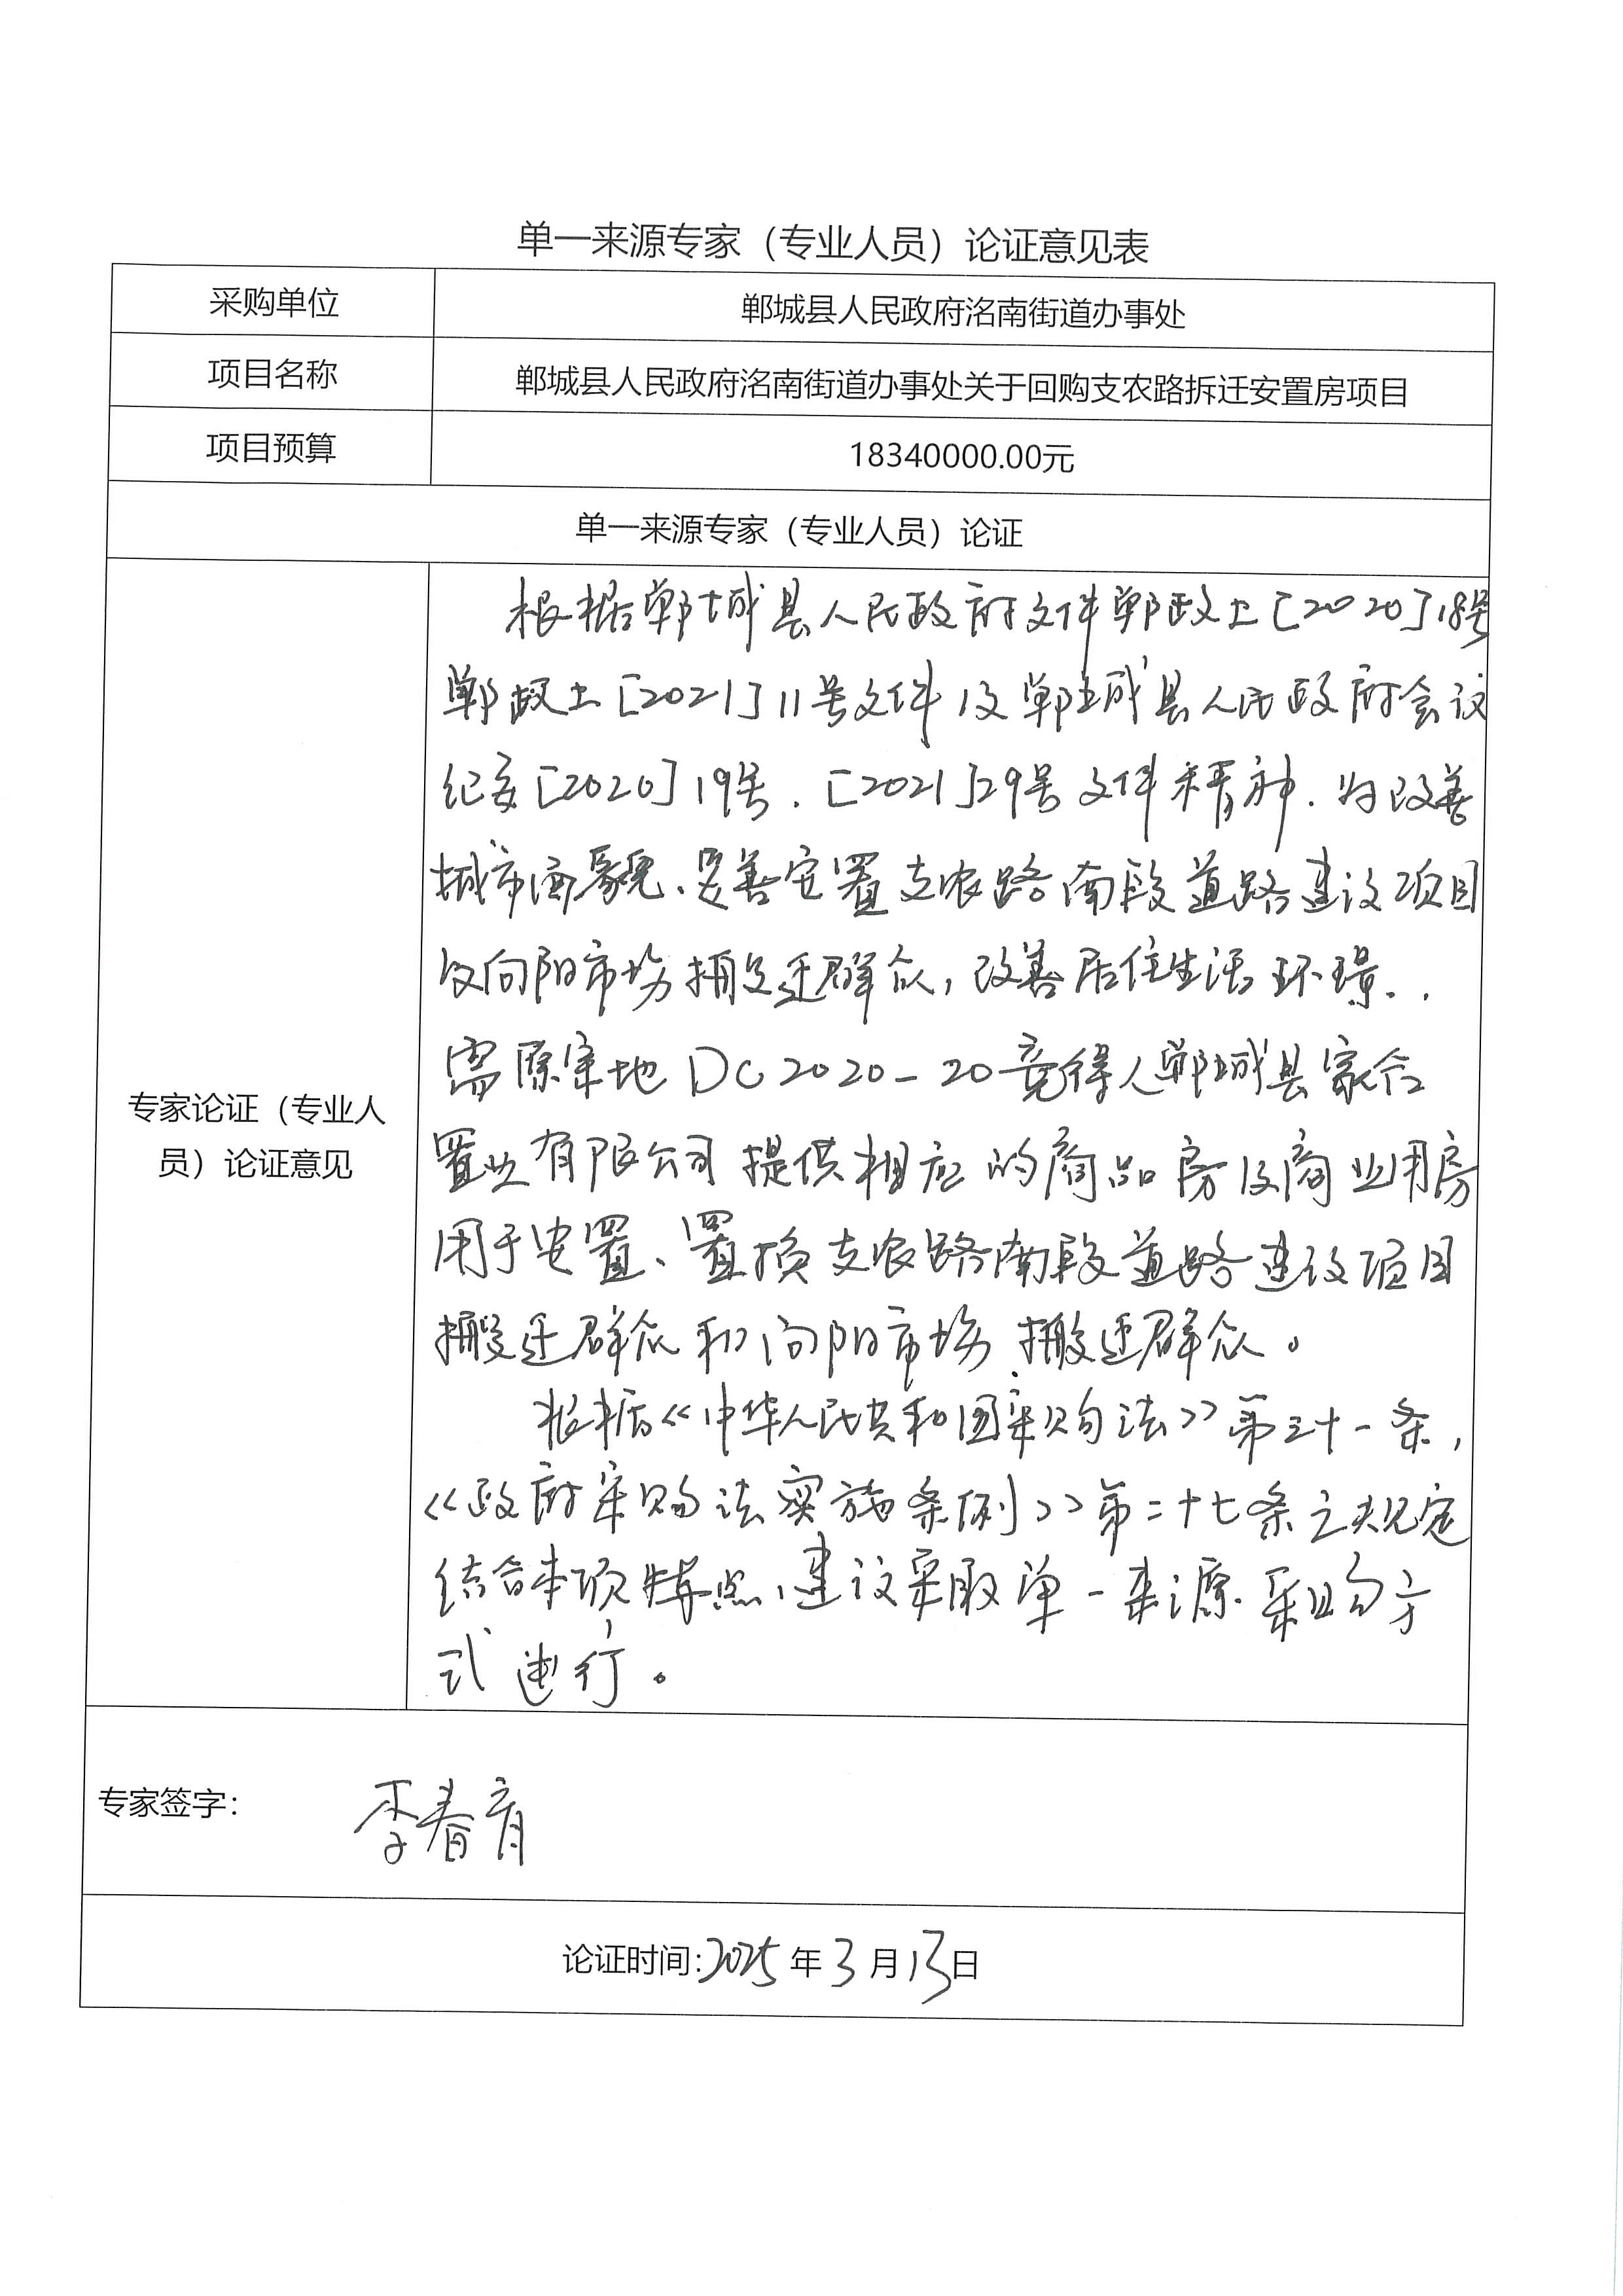 单一来源专家（专业人员）论证意见表
采购单位
郸城县人民政府洺南街道办事处
项目名称
郸城县人民政府洺南街道办事处关于回购支农路拆迁安置房项目
项目预算
18340000.00元
单一来源专家（专业人员）论证
专家论证（专业人
员）论证意见
根据郸城县人民政府文件郸政土[2020]18号
郸政土[2021]11号文件及郸城县人民政府会议
纪要[2020]19号.[2021]29号文件精神.为改善
城市面貌、妥善安置支农路南段道路建设项目
及向阳市场搬迁群众,改善居住生活环境.
需原宗地DC2020-20竞得人郸城县家合
置业有限公司提供相应的商品房及商业用房
用于安置、置换支农路南段道路建设项目
搬迁群众和向阳市场搬迁群众。
根据《中华人民共和国采购法》第三十一条,
《政府采购法实施条例》第二十七条之规定
结合本项特点,建议采取单一来源采购方
式进行。
专家签字：
李春育
论证时间:2025年3月13日